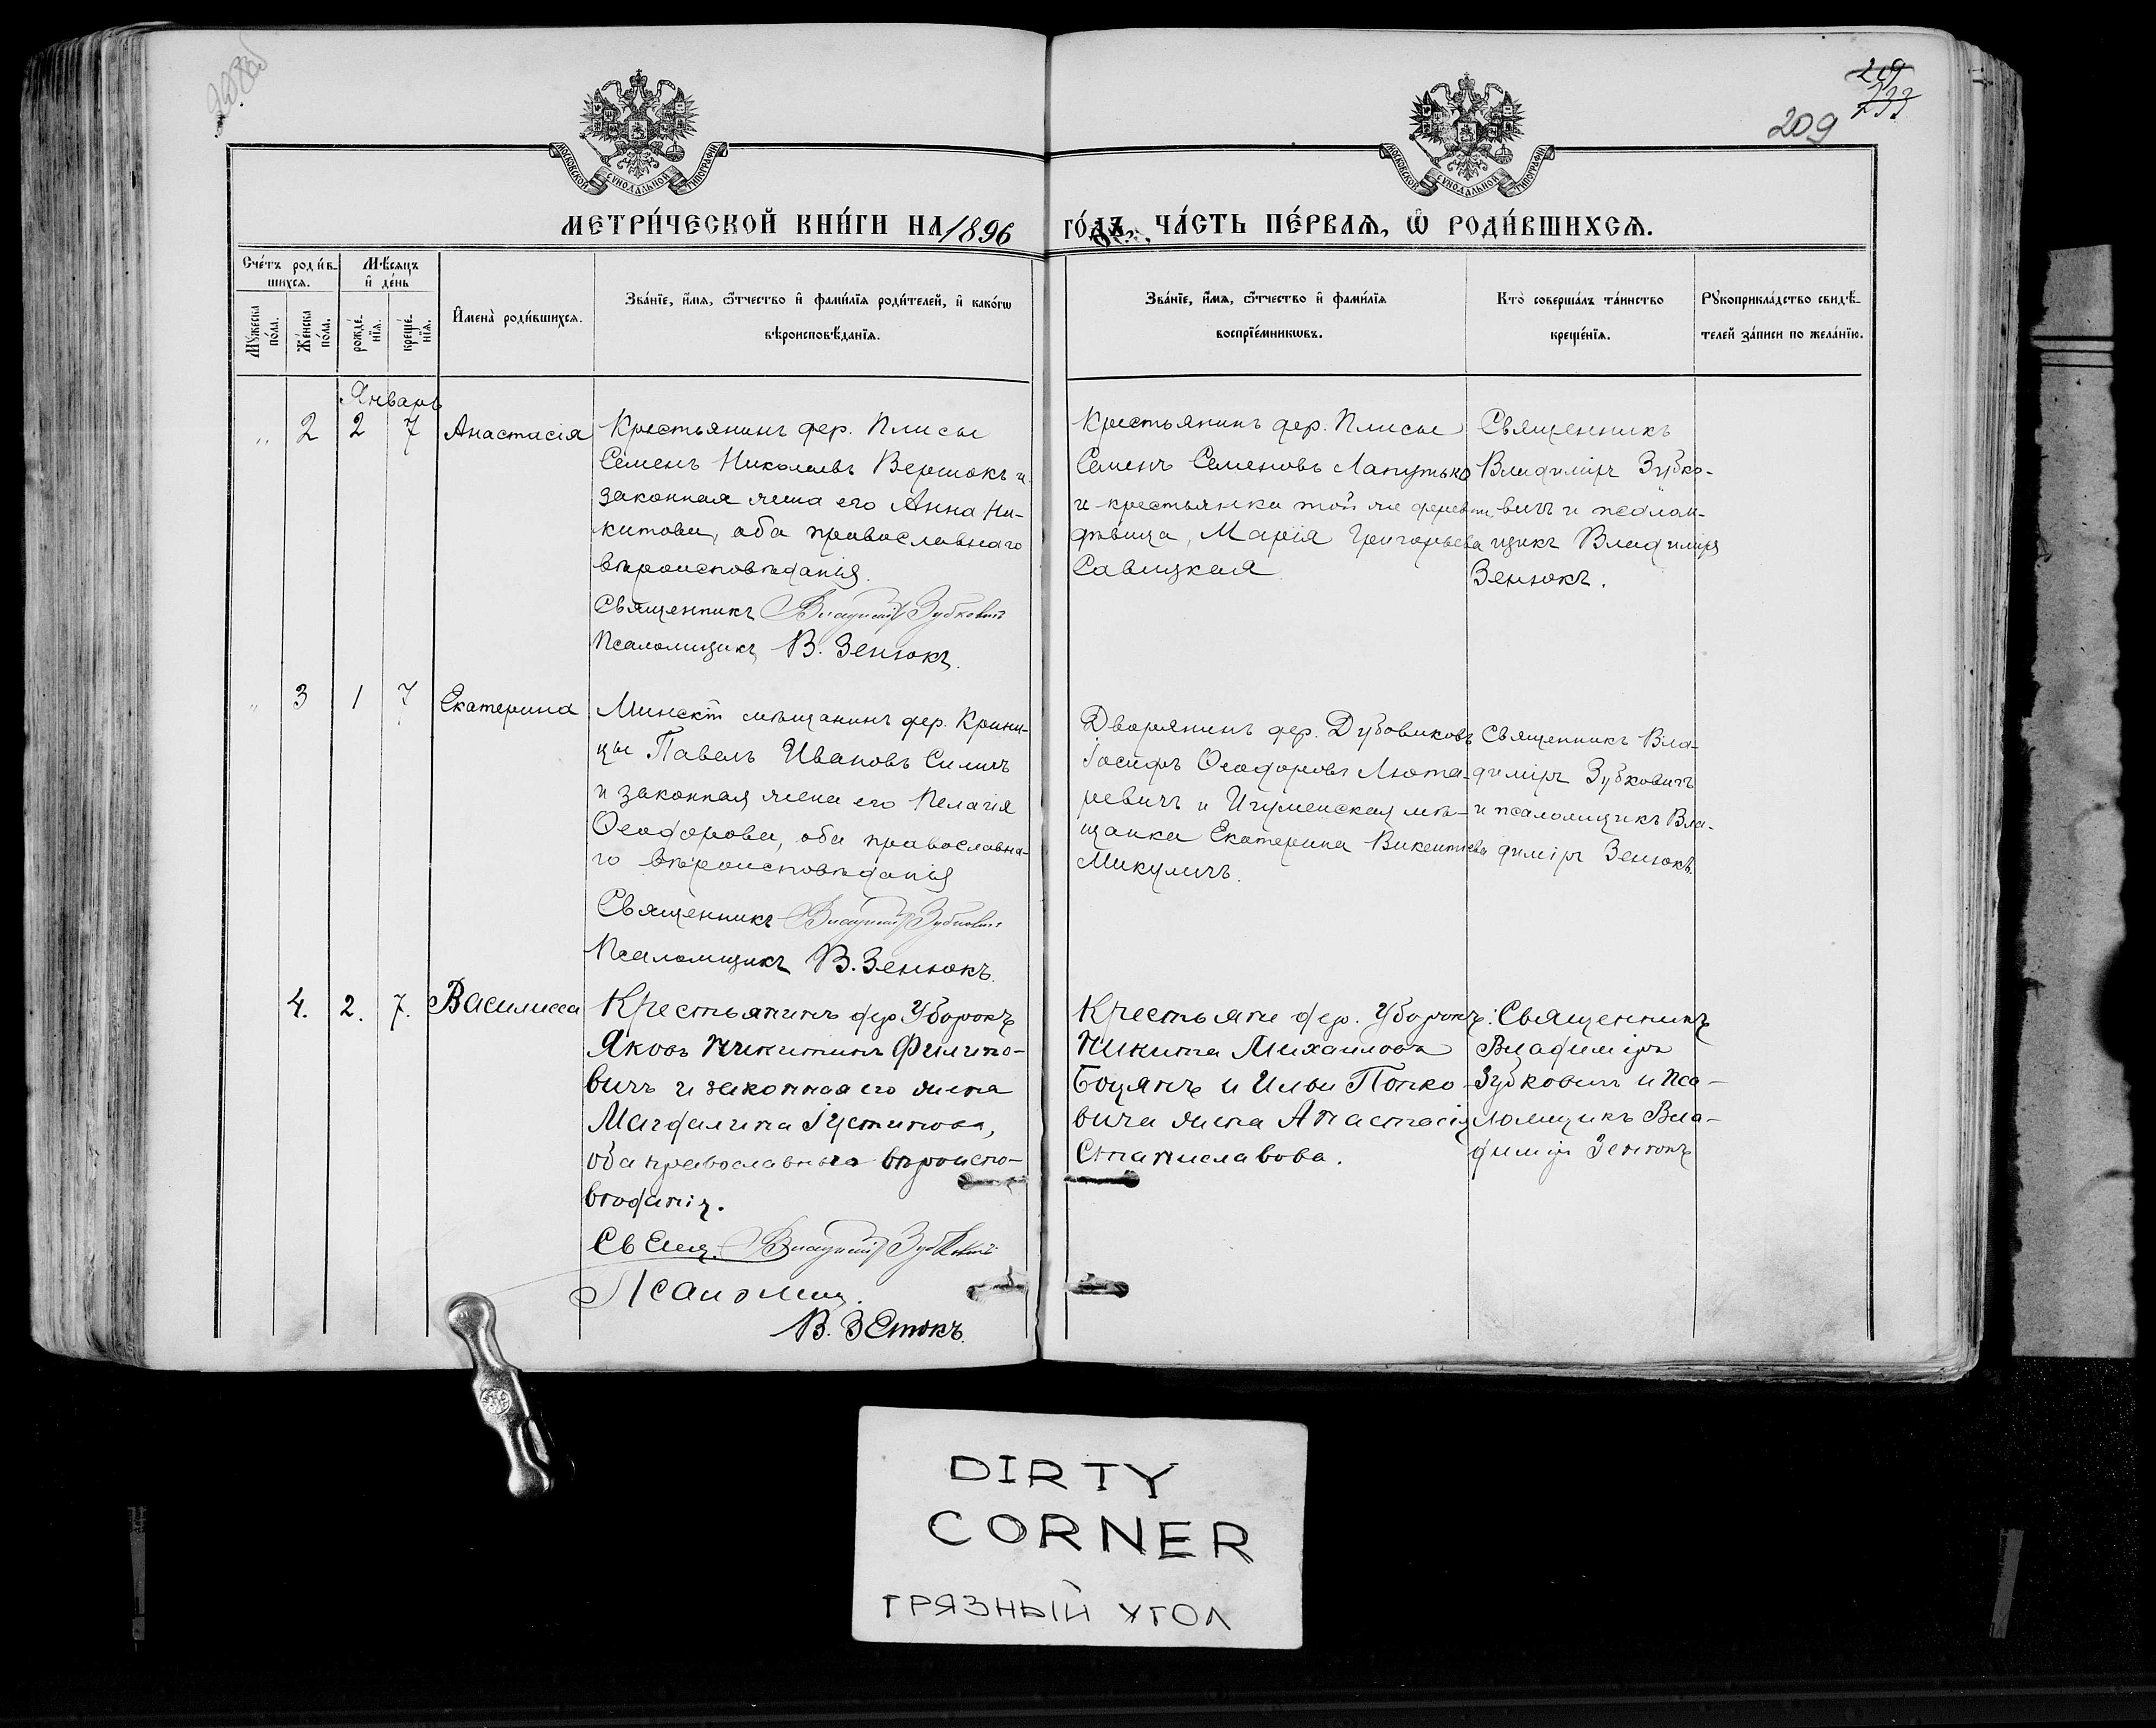 209
233
209
МОСКОВСКОЙ СѴНОДАЛЬНОЙ ТИПОГРАФІИ
МОСКОВСКОЙ СѴНОДАЛЬНОЙ ТИПОГРАФІИ
МЕТРИ́ЧЕСКОЙ КНИ́ГИ НА 1896 ГО́ДЪ, ЧА́СТЬ ПЕ́РВАЯ, Ѡ҆ РОДИ́ВШИХСЯ.
Сче́тъ роди́в-
шихся.
Мѣ́сяцъ
и҆ де́нь
Му́жеска по́ла.
Же́нска по́ла.
рожде́-
нїя.
креще́-
нїя.
И҆мена̀ роди́вшихся.
Зва́нїе, и҆́мя, ѻ҆́тчество и҆ фами́лїя роди́телей, и҆ како́гѡ
вѣроисповѣ́данїя.
Зва́нїе, и҆́мя, ѻ҆́тчество и҆ фами́лїя
воспрїе́мникѡвъ.
Кто̀ соверша́лъ та́инство
креще́нїя.
Рукоприкла́дство свидѣ́-
телей за́писи по жела́нїю.
Январь
„ 2 2 7 Анастасія
Крестьянинъ дер. Плисы
Семенъ Николаевъ Вершокъ и
законная жена его Анна Ни-
китова, оба православнаго
вѣроисповѣданія.
Священникъ Владиміръ Зубковичъ
Псаломщикъ В. Зенюкъ.
Крестьянинъ дер. Плисы
Семенъ Семеновъ Лапутько
и крестьянка той же деревни
дѣвица, Марія Григорьева
Савицкая
Священникъ
Владиміръ Зубко-
вичъ и псалом-
щикъ Владиміръ
Зенюкъ.
„ 3 1 7 Екатерина
Минскій мѣщанинъ дер. Крини-
цы Павелъ Ивановъ Силичъ
и законная жена его Пелагія
Ѳеодорова, оба православна-
го вѣроисповѣданія
Священникъ Владиміръ Зубковичъ
Псаломщикъ В. Зенюкъ.
Дворянинъ дер. Дубовиковъ
Іосифъ Ѳеодоровъ Люта-
ревичъ и Игуменская мѣ-
щанка Екатерина Викентіева
Микуличъ.
Священникъ Вла-
диміръ Зубковичъ
и псаломщикъ Вла-
диміръ Зенюкъ.
4. 2. 7. Василисса
Крестьянинъ дер Уборокъ
Яковъ Никитинъ Филипо-
вичъ и законная его жена
Магдалина Іустинова,
оба православнаго вѣроиспо-
вѣданія.
Свящ. Владиміръ Зубковичъ
Псаломщ.
В. Зенюкъ.
Крестьяне дер. Уборокъ:
Никита Михаиловъ
Боцянъ и Ильи Попко-
вича жена Анастасія
Станиславова.
Священникъ
Владиміръ
Зубковичъ и пса-
ломщикъ Вла-
диміръ Зенюкъ
DIRTY
CORNER
ГРЯЗНЫЙ УГОЛ